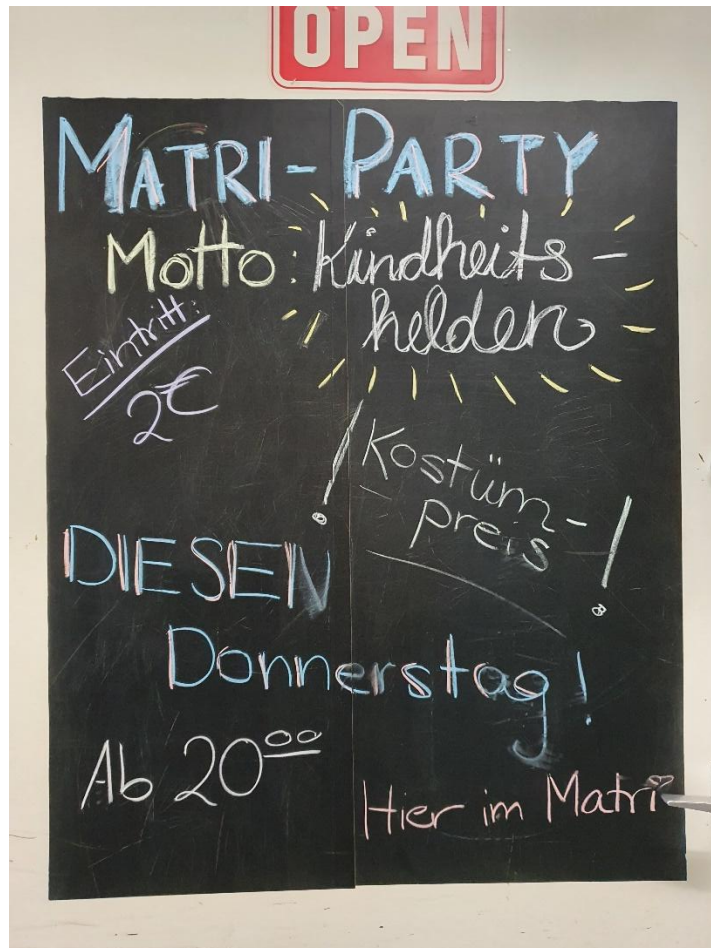 OPEN
MATRI-PARTY
Motto: Kindheits-
helden
Eintritt:
2€
! Kostüm-
preis !
DIESEN
Donnerstag!
Ab 2000
Hier im Matri